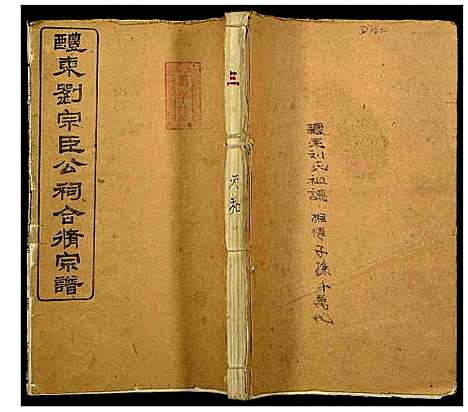 醴東劉宗臣公祠合脩宗譜
三
醴東刘氏祖譜
相傳子孫十萬代